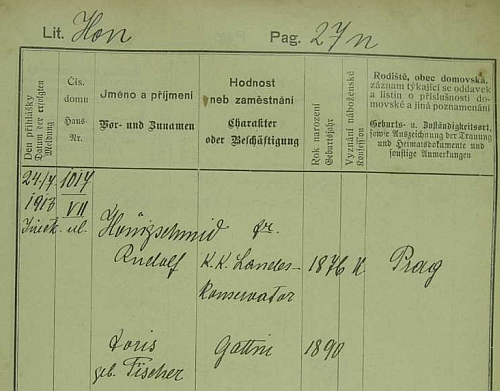 Lit. Hön
Pag. 27n
Den přihlášky
Datum der erfolgten
Meldung
Čís.
domu
Haus-
Nr.
Jméno a příjmení
Vor- und Zunamen
Hodnost
neb zaměstnání
Charakter
oder Beschäftigung
Rok narození
Geburtsjahr
Vyznání náboženské
Konfession
Rodiště, obec domovská,
záznam týkající se oddavek
a listin o příslušnosti do-
movské a jiná poznamenání
Geburts- u. Zuständigkeitsort,
sowie Aufzeichnung der Trauung
und Heimatsdokumente und
sonstige Anmerkungen
24/7 1017
1913 VII
ul.
Hönigschmid Dr.
Rudolf K.K. Landes- 1876 K Prag
Konservator
Doris Gattin 1890
geb. Fischer